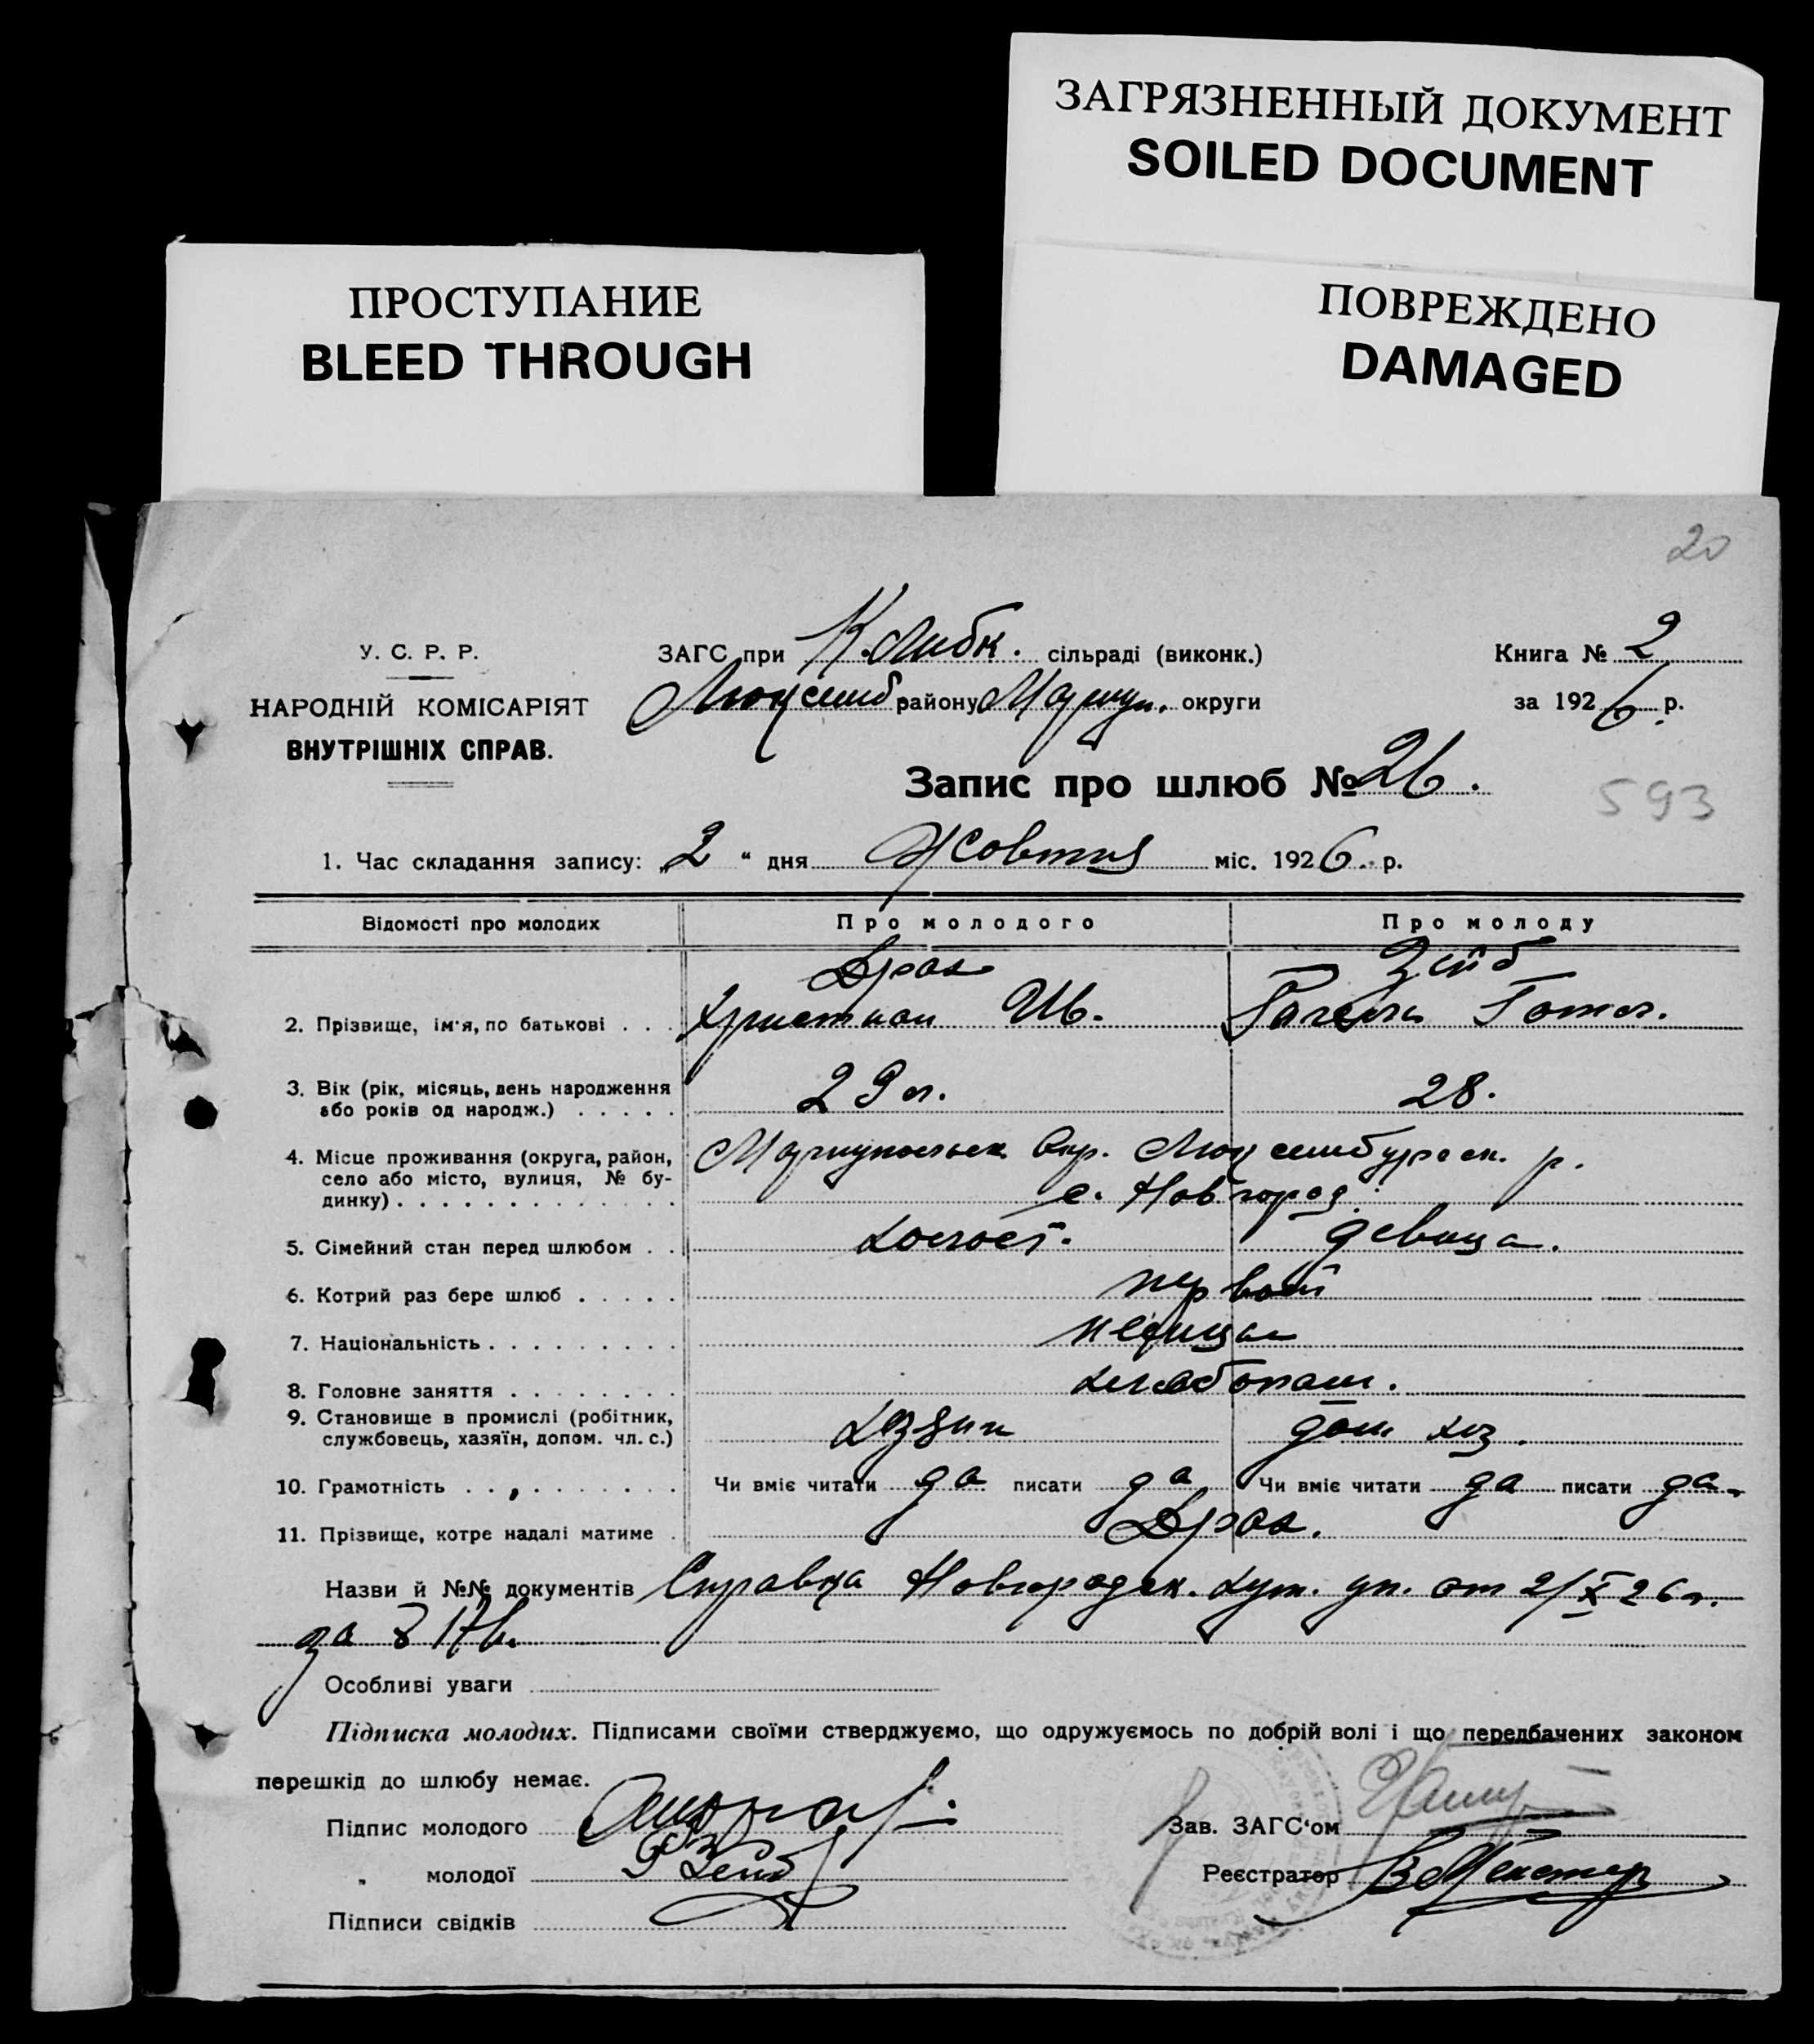 ЗАГРЯЗНЕННЫЙ ДОКУМЕНТ
SOILED DOCUMENT
ПРОСТУПАНИЕ
BLEED THROUGH
ПОВРЕЖДЕНО
DAMAGED
20
У. С. Р. Р.
НАРОДНІЙ КОМІСАРІЯТ
ВНУТРІШНІХ СПРАВ.
ЗАГС при К.Либк. сільраді (виконк.)
Люксемб району Мариуп. округи
Книга № 2
за 1926 р.
Запис про шлюб № 26.
593
1. Час складання запису: „2“ дня Жовтня міс. 1926 р.
Відомості про молодих Про молодого Про молоду
2. Прізвище, ім'я, по батькові . . . Христиан Ив. Готл.
3. Вік (рік, місяць, день народження або років од народж.) . . . . . 29 л. 28.
4. Місце проживання (округа, район, село або місто, вулиця, № будинку) . . . Мариупольск. Окр. Люксембургск. р.
с. Новгород.
5. Сімейний стан перед шлюбом . . холост. девица.
6. Котрий раз бере шлюб . . . . . первый
7. Національність . . . . . . . . . немцы
8. Головне заняття . . . . . . . . хлебопаш.
9. Становище в промислі (робітник, службовець, хазяїн, допом. чл. с.) хазяин дом. хоз.
10. Грамотність . . . . . . . . . Чи вміє читати да писати да Чи вміє читати да писати да
11. Прізвище, котре надалі матиме .
Назви й №№ документів Справка Новгородск. хут. уп. от 2/X 26 г.
за №
Особливі уваги
Підписка молодих. Підписами своїми стверджуємо, що одружуємось по добрій волі і що передбачених законом
перешкід до шлюбу немає.
Підпис молодого
„ молодої
Підписи свідків
Зав. ЗАГС'ом
Реєстратор